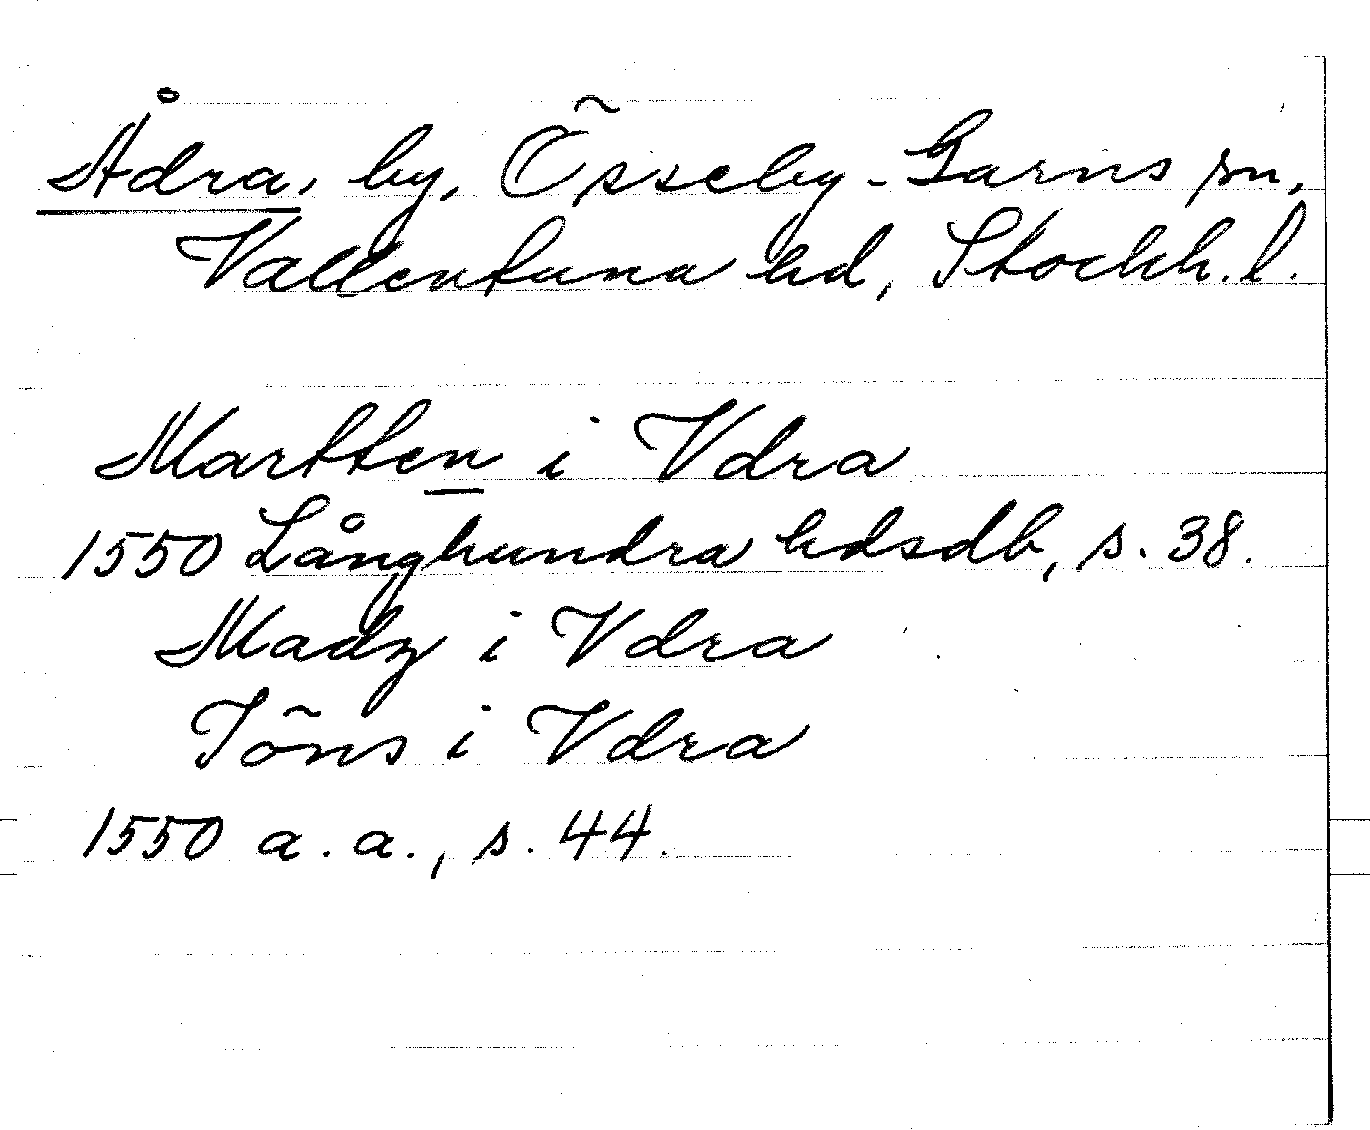 Ådra, by, Össeby-Garns sn,
Vallentuna hd, Stockh. l.
Martten i Vdra
1550 Långhundra hdsdb, s. 38.
Madz i Vdra
Jöns i Vdra
1550 a. a., s. 44.